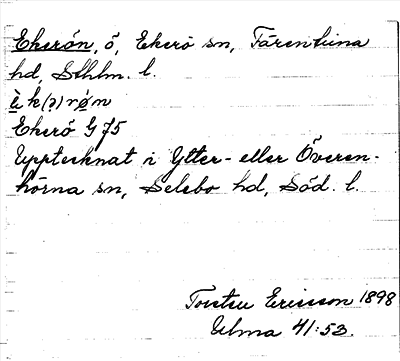 Ekerön, ö, Ekerö sn, Färentuna
hd, Sthlm. l.
è k(?) rø̀n
Ekerö G 75
Upptecknat i Ytter- eller Överen-
hörna sn, Selebo hd, Söd. l.
Torsten Ericsson 1898
Ulma 41:53.